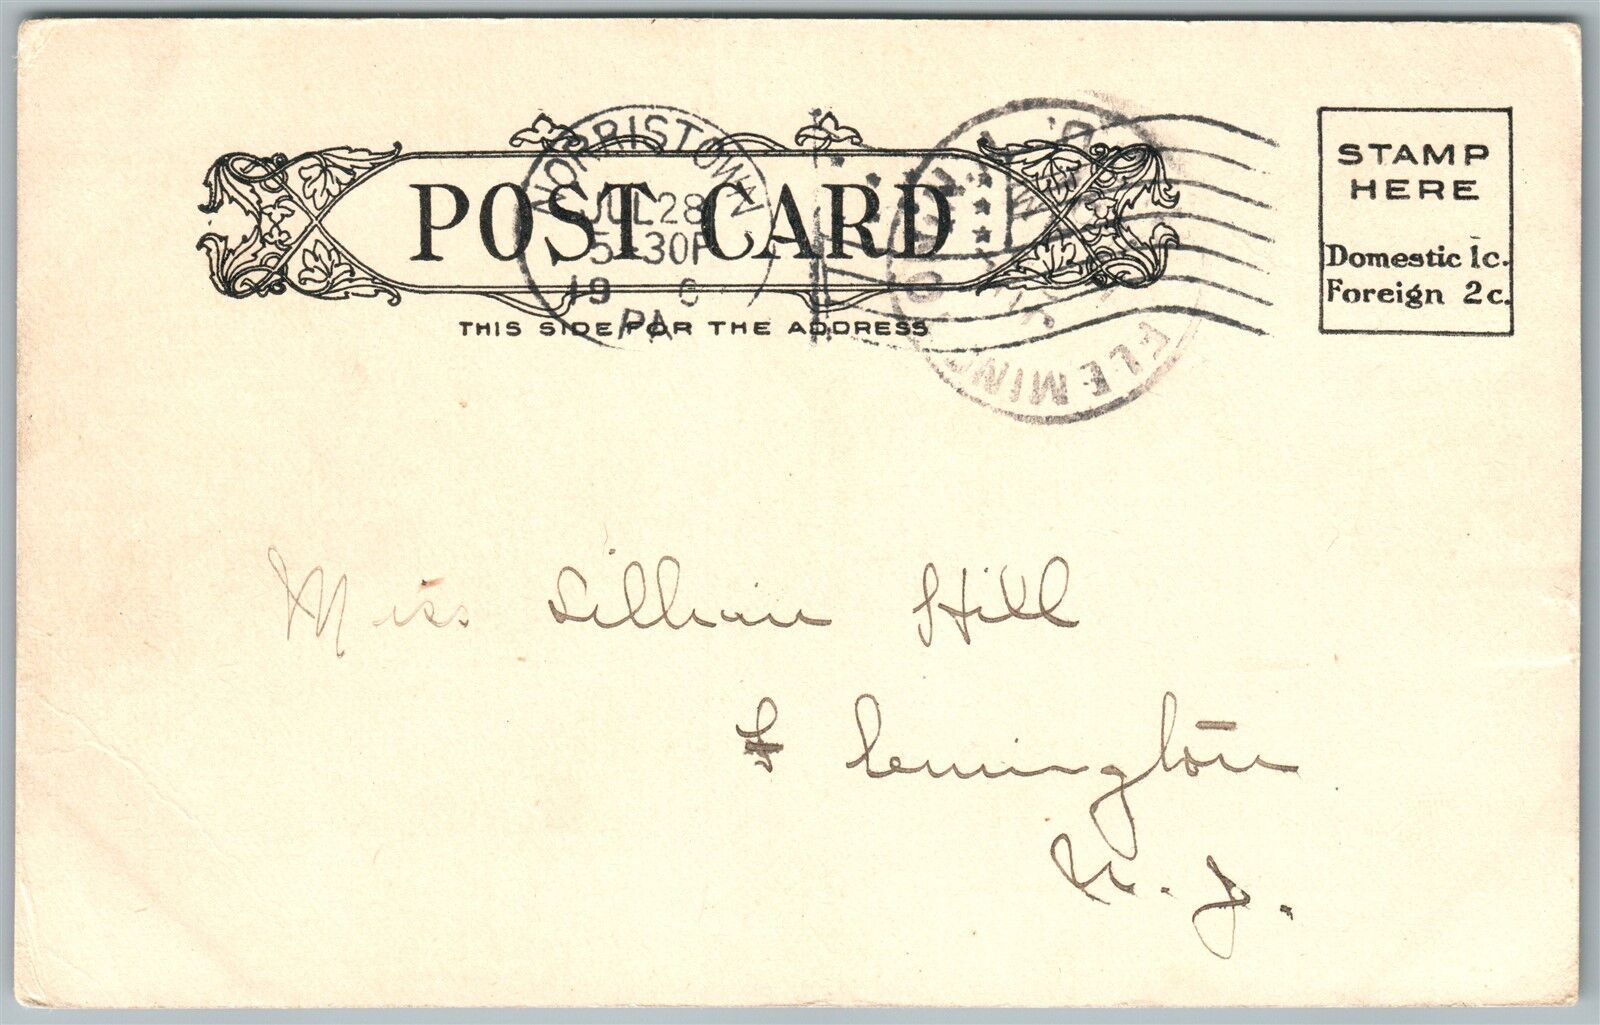 NORRISTOWN
JUL 28
5 30P
19 6
PA
POST CARD
THIS SIDE FOR THE ADDRESS
STAMP
HERE
Domestic 1c.
Foreign 2c.
Miss Lillian Hill
Flemington
N. J.